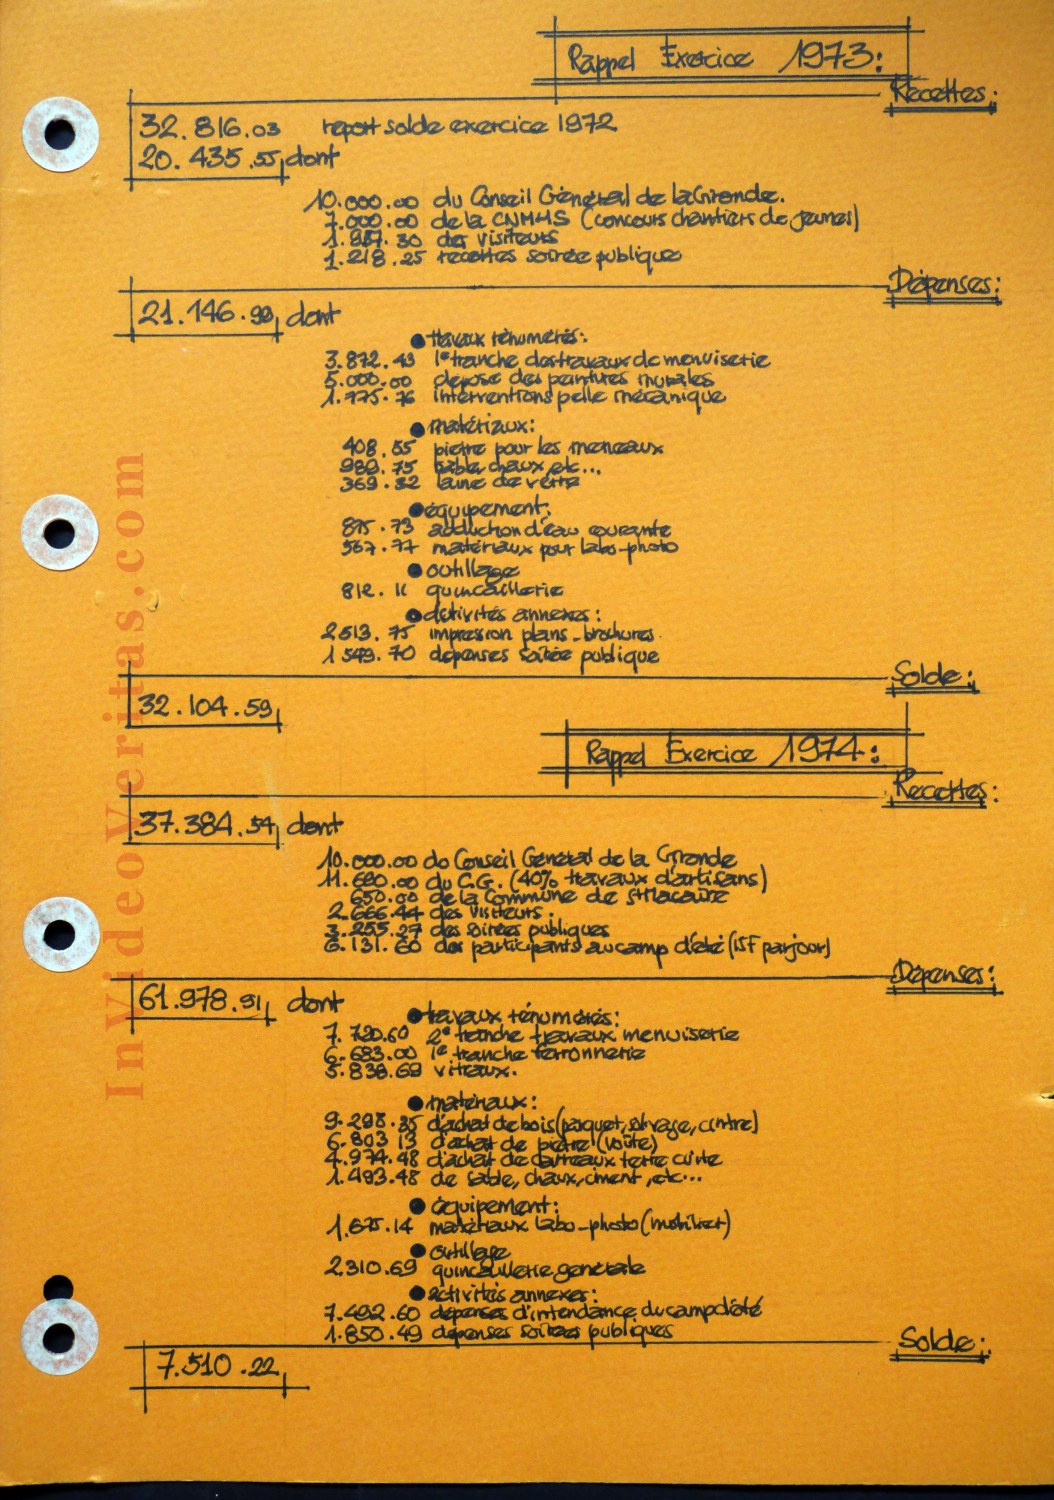 Rappel Exercice 1973:
Recettes:
32.816.03 report solde exercice 1972
20.435.55, dont
10.000.00 du Conseil Général de la Gironde.
7.000.00 de la CNMHS (concours chantiers de jeunes)
30 des visiteurs
1.218.25 recettes soirée publique
Dépenses:
21.146.99, dont
● travaux rénumérés:
3.872.43 1e tranche des travaux de menuiserie
5.000.00 dépose des peintures murales
1.775.76 interventions pelle mécanique
● matériaux:
408.55 pierre pour les meneaux
989.75 sable, chaux, etc...
369.32 laine de verre
● équipement:
875.73 adduction d'eau courante
567.77 matériaux pour labo-photo
● outillage
812.11 quincaillerie
● activités annexes:
2513.75 impression plans-brochures
1549.70 dépenses soirée publique
Solde:
32.104.59
Rappel Exercice 1974:
Recettes:
37.384.54, dont
10.000.00 du Conseil Général de la Gironde
11.680.00 du C.G. (40% travaux d'artisans)
650.00 de la Commune de St Macaire
2.666.44 des visiteurs.
3.255.27 des soirées publiques
6.131.60 des participants au camp d'été (15F par jour)
Dépenses:
61.978.91, dont
● travaux rénumérés:
7.720.60 2e tranche travaux menuiserie
6.683.00 1e tranche ferronnerie
5.838.69 vitraux.
● matériaux:
9.298.35 d'achat de bois (parquet, cintre)
6.803 13 d'achat de pierre (voûte)
4.974.48 d'achat de carreaux terre cuite
1.493.48 de sable, chaux, ciment, etc...
● équipement:
1.675.14 matériaux labo-photo (mobilier)
● outillage
2310.69 quincaillerie générale
● activités annexes:
7.492.60 dépenses d'intendance du camp d'été
1.850.49 dépenses soirées publiques
Solde:
7.510.22
InVideoVeritas.com